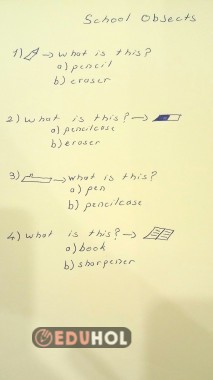 School Objects
1) → what is this?
a) pencil
b) eraser
2) what is this? →
a) pencilcase
b) eraser
3) → what is this?
a) pen
b) pencilcase
4) what is this? →
a) book
b) sharpener
EDUHOL